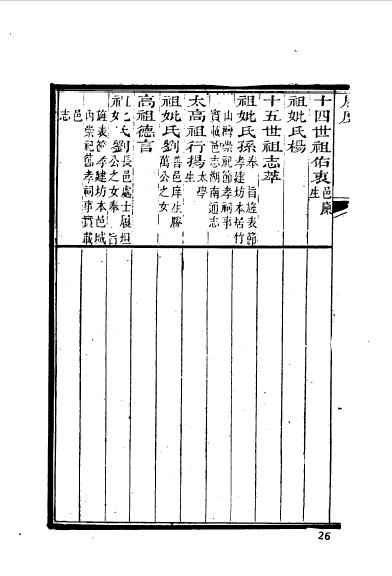 十四世祖佑衷邑廩生
祖妣氏楊
十五世祖志萃
祖妣氏孫奉旨旌表節孝建坊本居竹
山灣崇祀節孝祠事實載邑志湖南通志
太高祖行揚太學生
祖妣氏劉善邑庠生勝萬公之女
高祖德言
氏劉長邑處士展垣公之女奉旨
旌表節孝建坊本邑城內崇祀節孝祠事實載
邑志
26